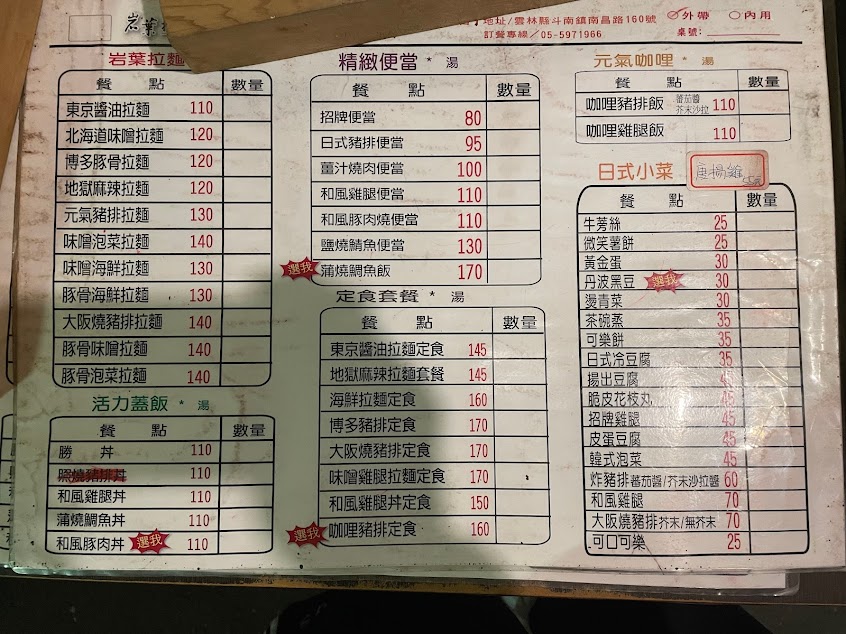 岩葉
地址/雲林縣斗南鎮南昌路160號
訂餐專線/05-5971966
外帶 內用
桌號:
岩葉拉麵
餐 點 數量
東京醬油拉麵 110
北海道味噌拉麵 120
博多豚骨拉麵 120
地獄麻辣拉麵 120
元氣豬排拉麵 130
味噌泡菜拉麵 140
味噌海鮮拉麵 130
豚骨海鮮拉麵 130
大阪燒豬排拉麵 140
豚骨味噌拉麵 140
豚骨泡菜拉麵 140
活力蓋飯 * 湯
餐 點 數量
勝 丼 110
照燒豬排丼 110
和風雞腿丼 110
蒲燒鯛魚丼 110
和風豚肉丼 選我 110
精緻便當 * 湯
餐 點 數量
招牌便當 80
日式豬排便當 95
薑汁燒肉便當 100
和風雞腿便當 110
和風豚肉燒便當 110
鹽燒鯖魚便當 130
選我 蒲燒鯛魚飯 170
定食套餐 * 湯
餐 點 數量
東京醬油拉麵定食 145
地獄麻辣拉麵套餐 145
海鮮拉麵定食 160
博多豬排定食 170
大阪燒豬排定食 170
味噌雞腿拉麵定食 170
和風雞腿丼定食 150
選我 咖哩豬排定食 160
元氣咖哩 * 湯
餐 點 數量
咖哩豬排飯 蕃茄醬 芥末沙拉 110
咖哩雞腿飯 110
日式小菜 唐揚雞
餐 點 數量
牛蒡絲 25
微笑薯餅 25
黃金蛋 30
丹波黑豆 選我 30
燙青菜 30
茶碗蒸 35
可樂餅 35
日式冷豆腐 35
揚出豆腐
脆皮花枝丸 45
招牌雞腿 45
皮蛋豆腐 45
韓式泡菜 45
炸豬排蕃茄醬/芥末沙拉醬 60
和風雞腿 70
大阪燒豬排芥末/無芥末 70
可口可樂 25